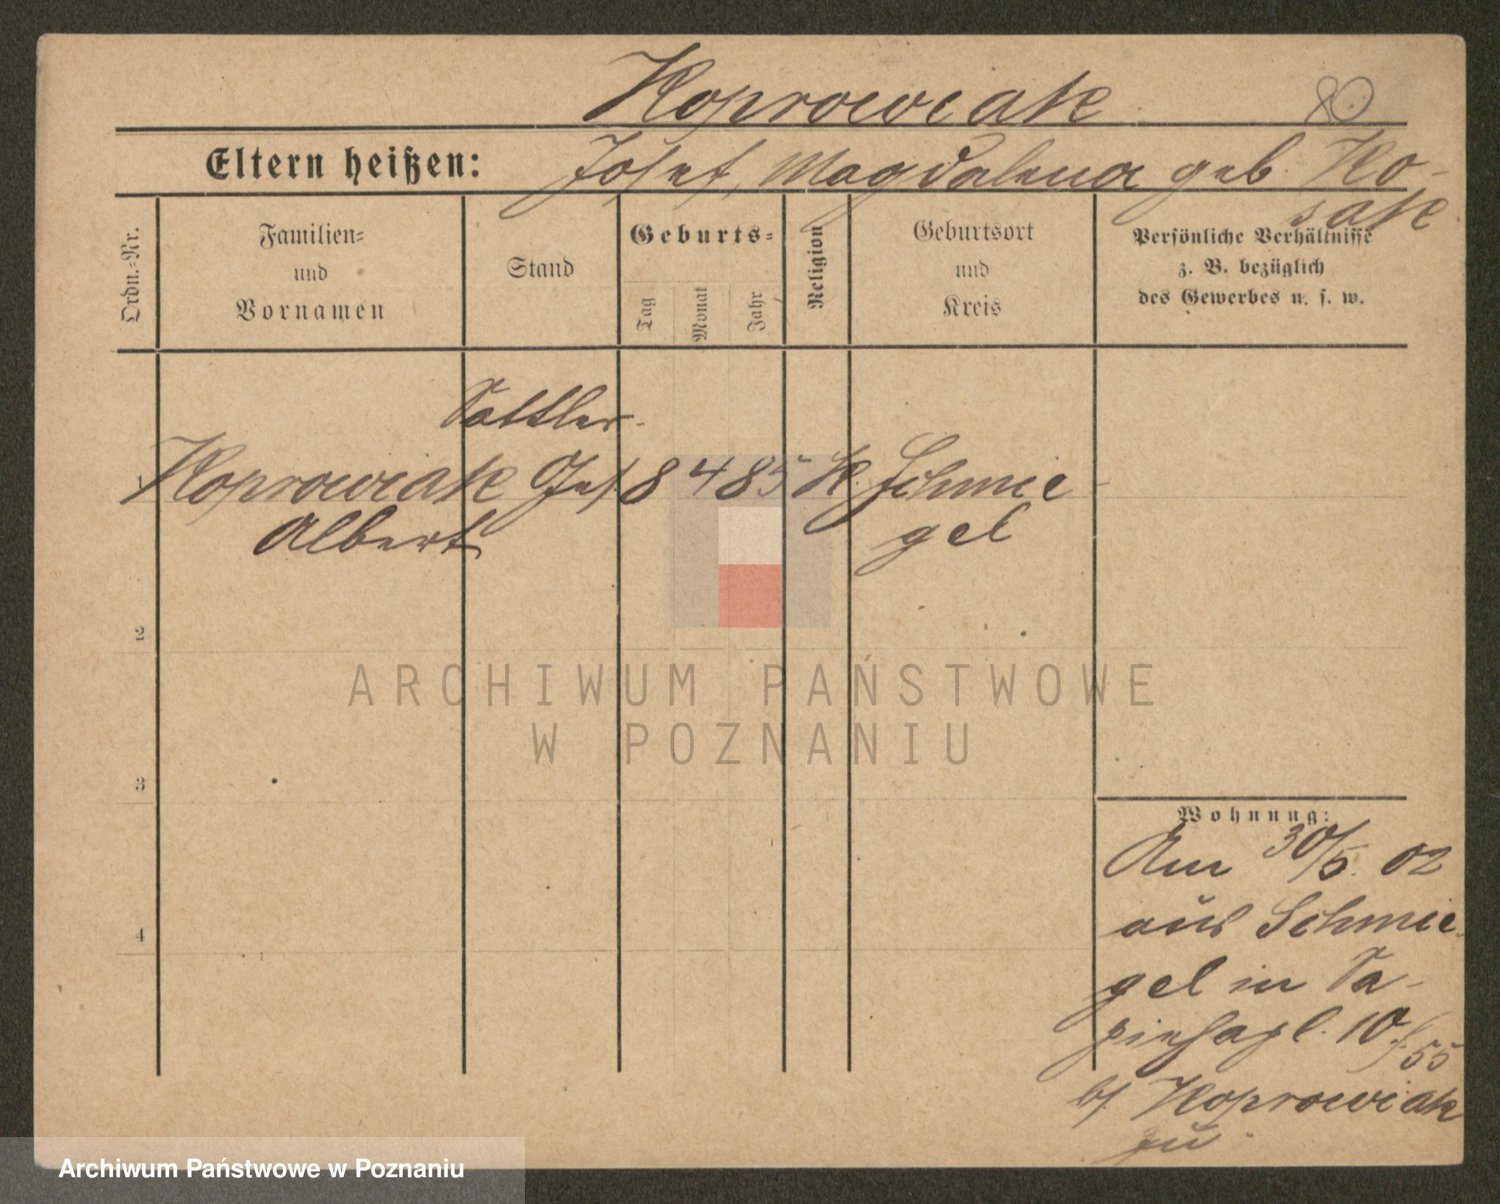 Koprowiak
80
Eltern heißen: Josef, Magdalena geb. Ko-
sak
Ordn.-Nr.
Familien-
und
Vornamen
Stand
Geburts-
Tag
Monat
Jahr
Religion
Geburtsort
und
Kreis
Persönliche Verhältnisse
z. B. bezüglich
des Gewerbes u. s. w.
Sattler-
1 Koprowiak 8 4 85 K. Schmie-
Albert gel
2
ARCHIWUM PAŃSTWOWE
W POZNANIU
3
4
Wohnung:
Am 30/5. 02
aus Schmie-
gel in Sa-
piehapl. 10/55
b/ Koprowiak
zu
Archiwum Państwowe w Poznaniu